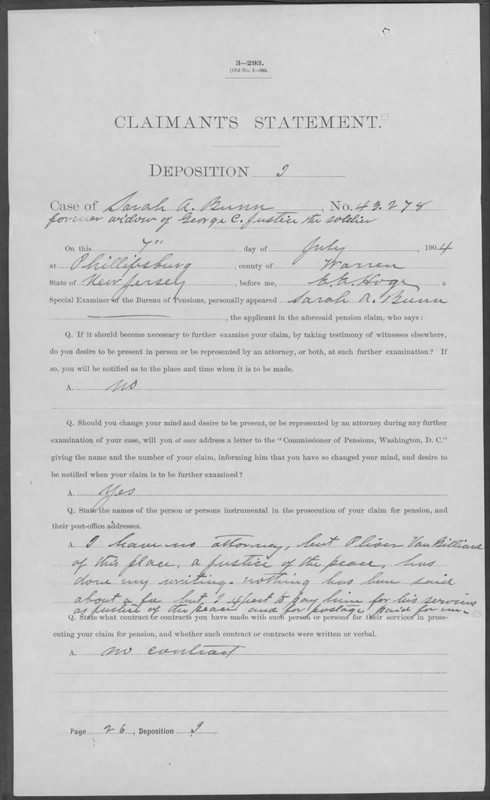 3—293.
(Old No. 3—480.)
CLAIMANT'S STATEMENT.
DEPOSITION I
Case of Sarah A. Bunn, No. 49.278
former widow of George C. Justice the soldier
On this 7" day of July, 1904
at Phillipsburg, county of Warren
State of New Jersey, before me, E. G. Hoge, a
Special Examiner of the Bureau of Pensions, personally appeared Sarah A. Bunn
, the applicant in the aforesaid pension claim, who says:
Q. If it should become necessary to further examine your claim, by taking testimony of witnesses elsewhere,
do you desire to be present in person or be represented by an attorney, or both, at such further examination? If
so, you will be notified as to the place and time when it is to be made.
A. no
Q. Should you change your mind and desire to be present, or be represented by an attorney during any further
examination of your case, will you at once address a letter to the "Commissioner of Pensions, Washington, D. C."
giving the name and the number of your claim, informing him that you have so changed your mind, and desire to
be notified when your claim is to be further examined?
A. Yes
Q. State the names of the person or persons instrumental in the prosecution of your claim for pension, and
their post-office addresses.
A. I have no attorney, but Oliver Van Billiard
of this place, a justice of the peace, has
done my writing. nothing has been said
about a fee but I expect to pay him for his services
as justice of the peace and for postage paid for me
Q. State what contract or contracts you have made with such person or persons for their services in prose-
cuting your claim for pension, and whether such contract or contracts were written or verbal.
A. no contract
Page 26, Deposition I